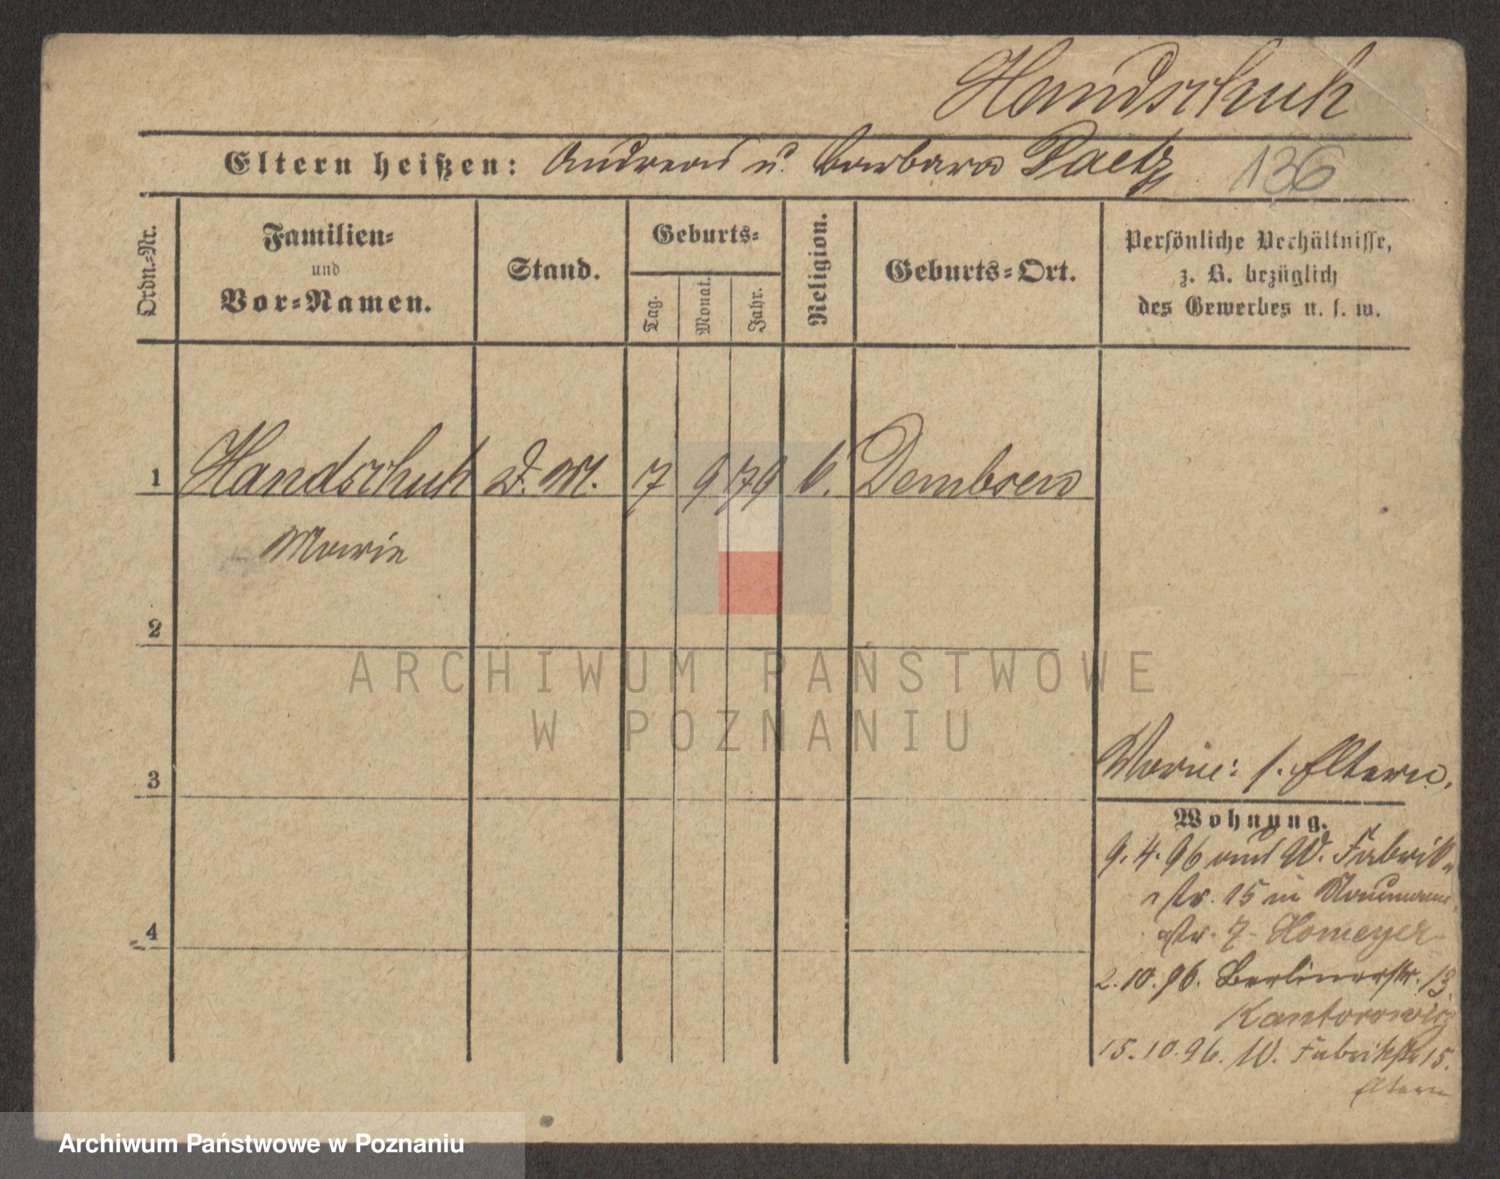 Handschuh
Eltern heißen: Andreas u. Barbara Paetz 136
Ordn.-Nr.
Familien-
und
Vor-Namen.
Stand.
Geburts-
Tag.
Monat.
Jahr.
Religion.
Geburts-Ort.
Persönliche Verhältnisse,
z. B. bezüglich
des Gewerbes u. s. w.
1 Handschuh D. M. 7 9 79 k. Dembsen
Marie
2
3
4
Marie: s. Eltern.
Wohnung.
9. 4. 96 W. Fabrik-
str. 15 in Naumann
str. 7 Homeyer
2. 10. 96. Berlinerstr. 13
Kantorowicz
15. 10. 96. W. Fabrikstr 15.
Eltern
ARCHIWUM PAŃSTWOWE
W POZNANIU
Archiwum Państwowe w Poznaniu